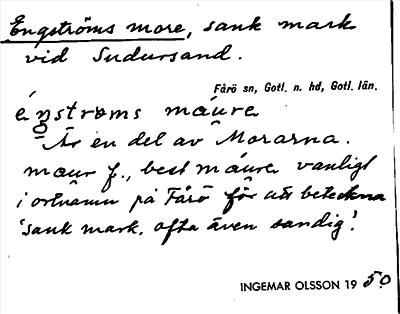 Engströms more, sank mark
vid Sudursand.
Fårö sn, Gotl. n. hd, Gotl. län.
éŋstrøms mɑ́ure
Är en del av Morarna.
maur f., best máure vanligt
i ortnamn på Fårö för att beteckna
'sank mark, ofta även sandig'.
INGEMAR OLSSON 1950